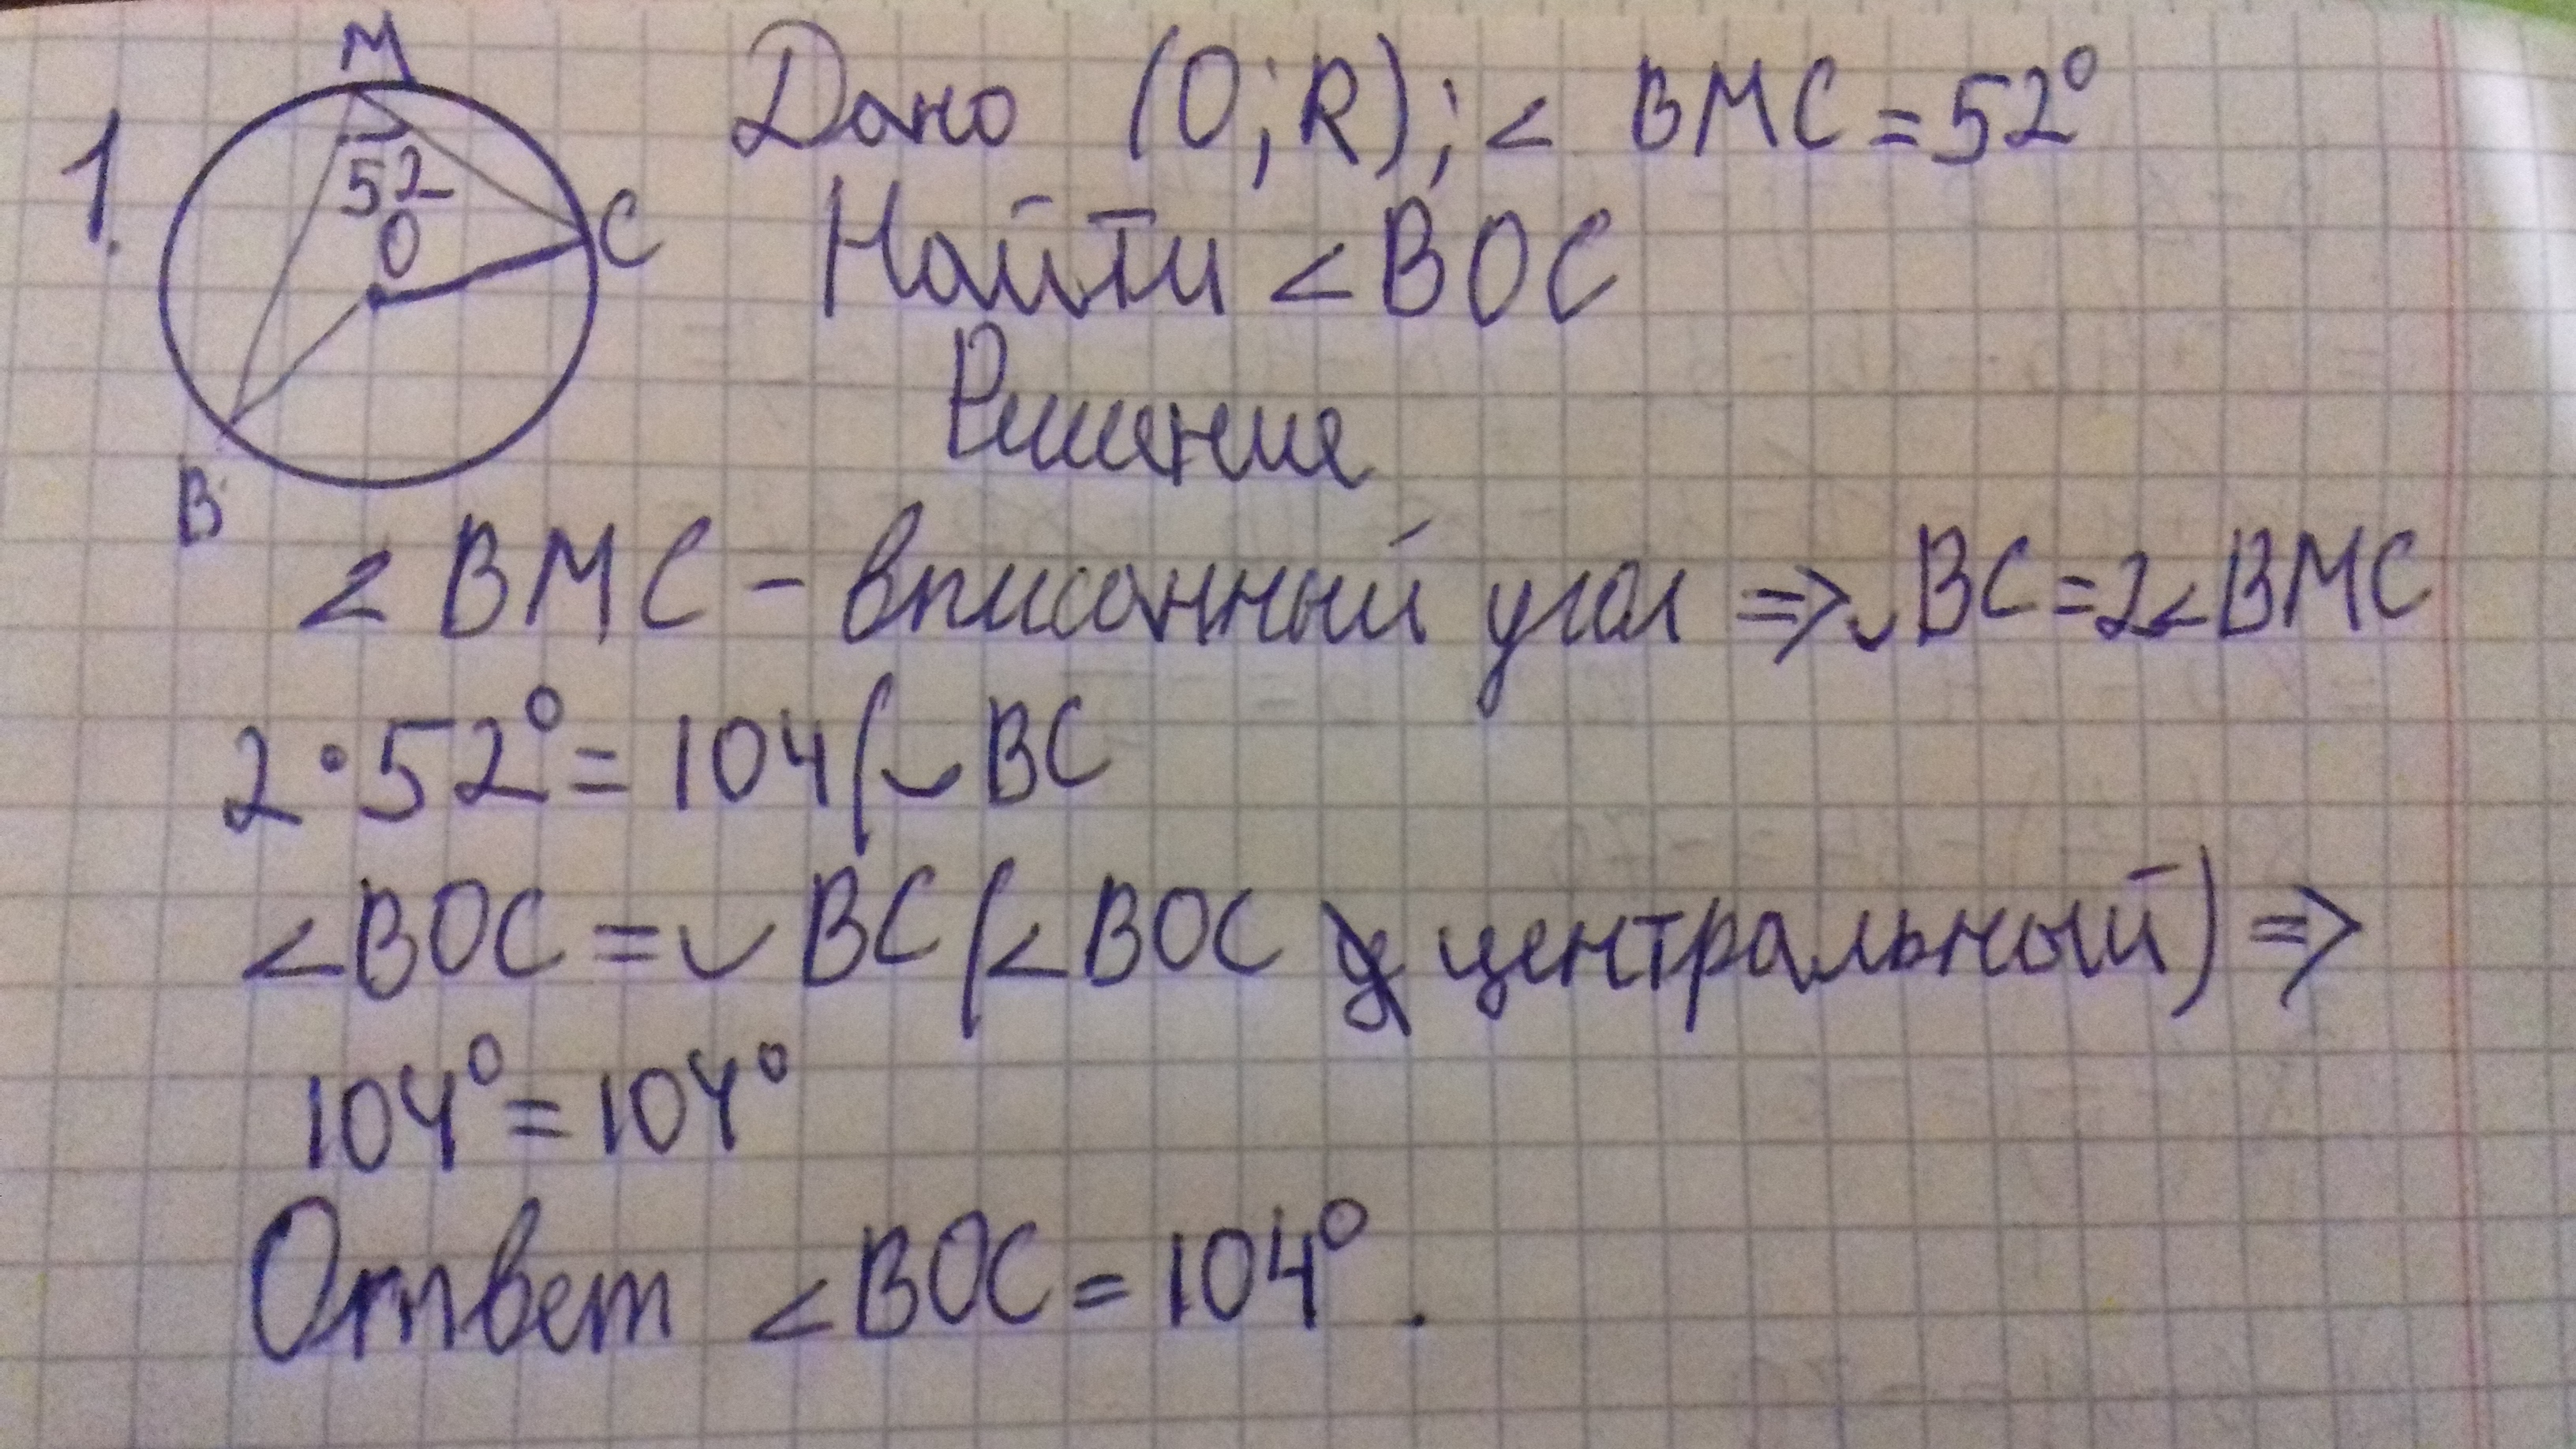 1.
M
52
O
C
B
Дано (O;R);< BMC=52°
Найти <BOC
Решение
< BMC – вписанный угол ⇒ ◡BC=2<BMC
2·52°=104(◡BC
<BOC=◡BC(<BOC центральный) ⇒
104°=104°
Ответ <BOC=104°.